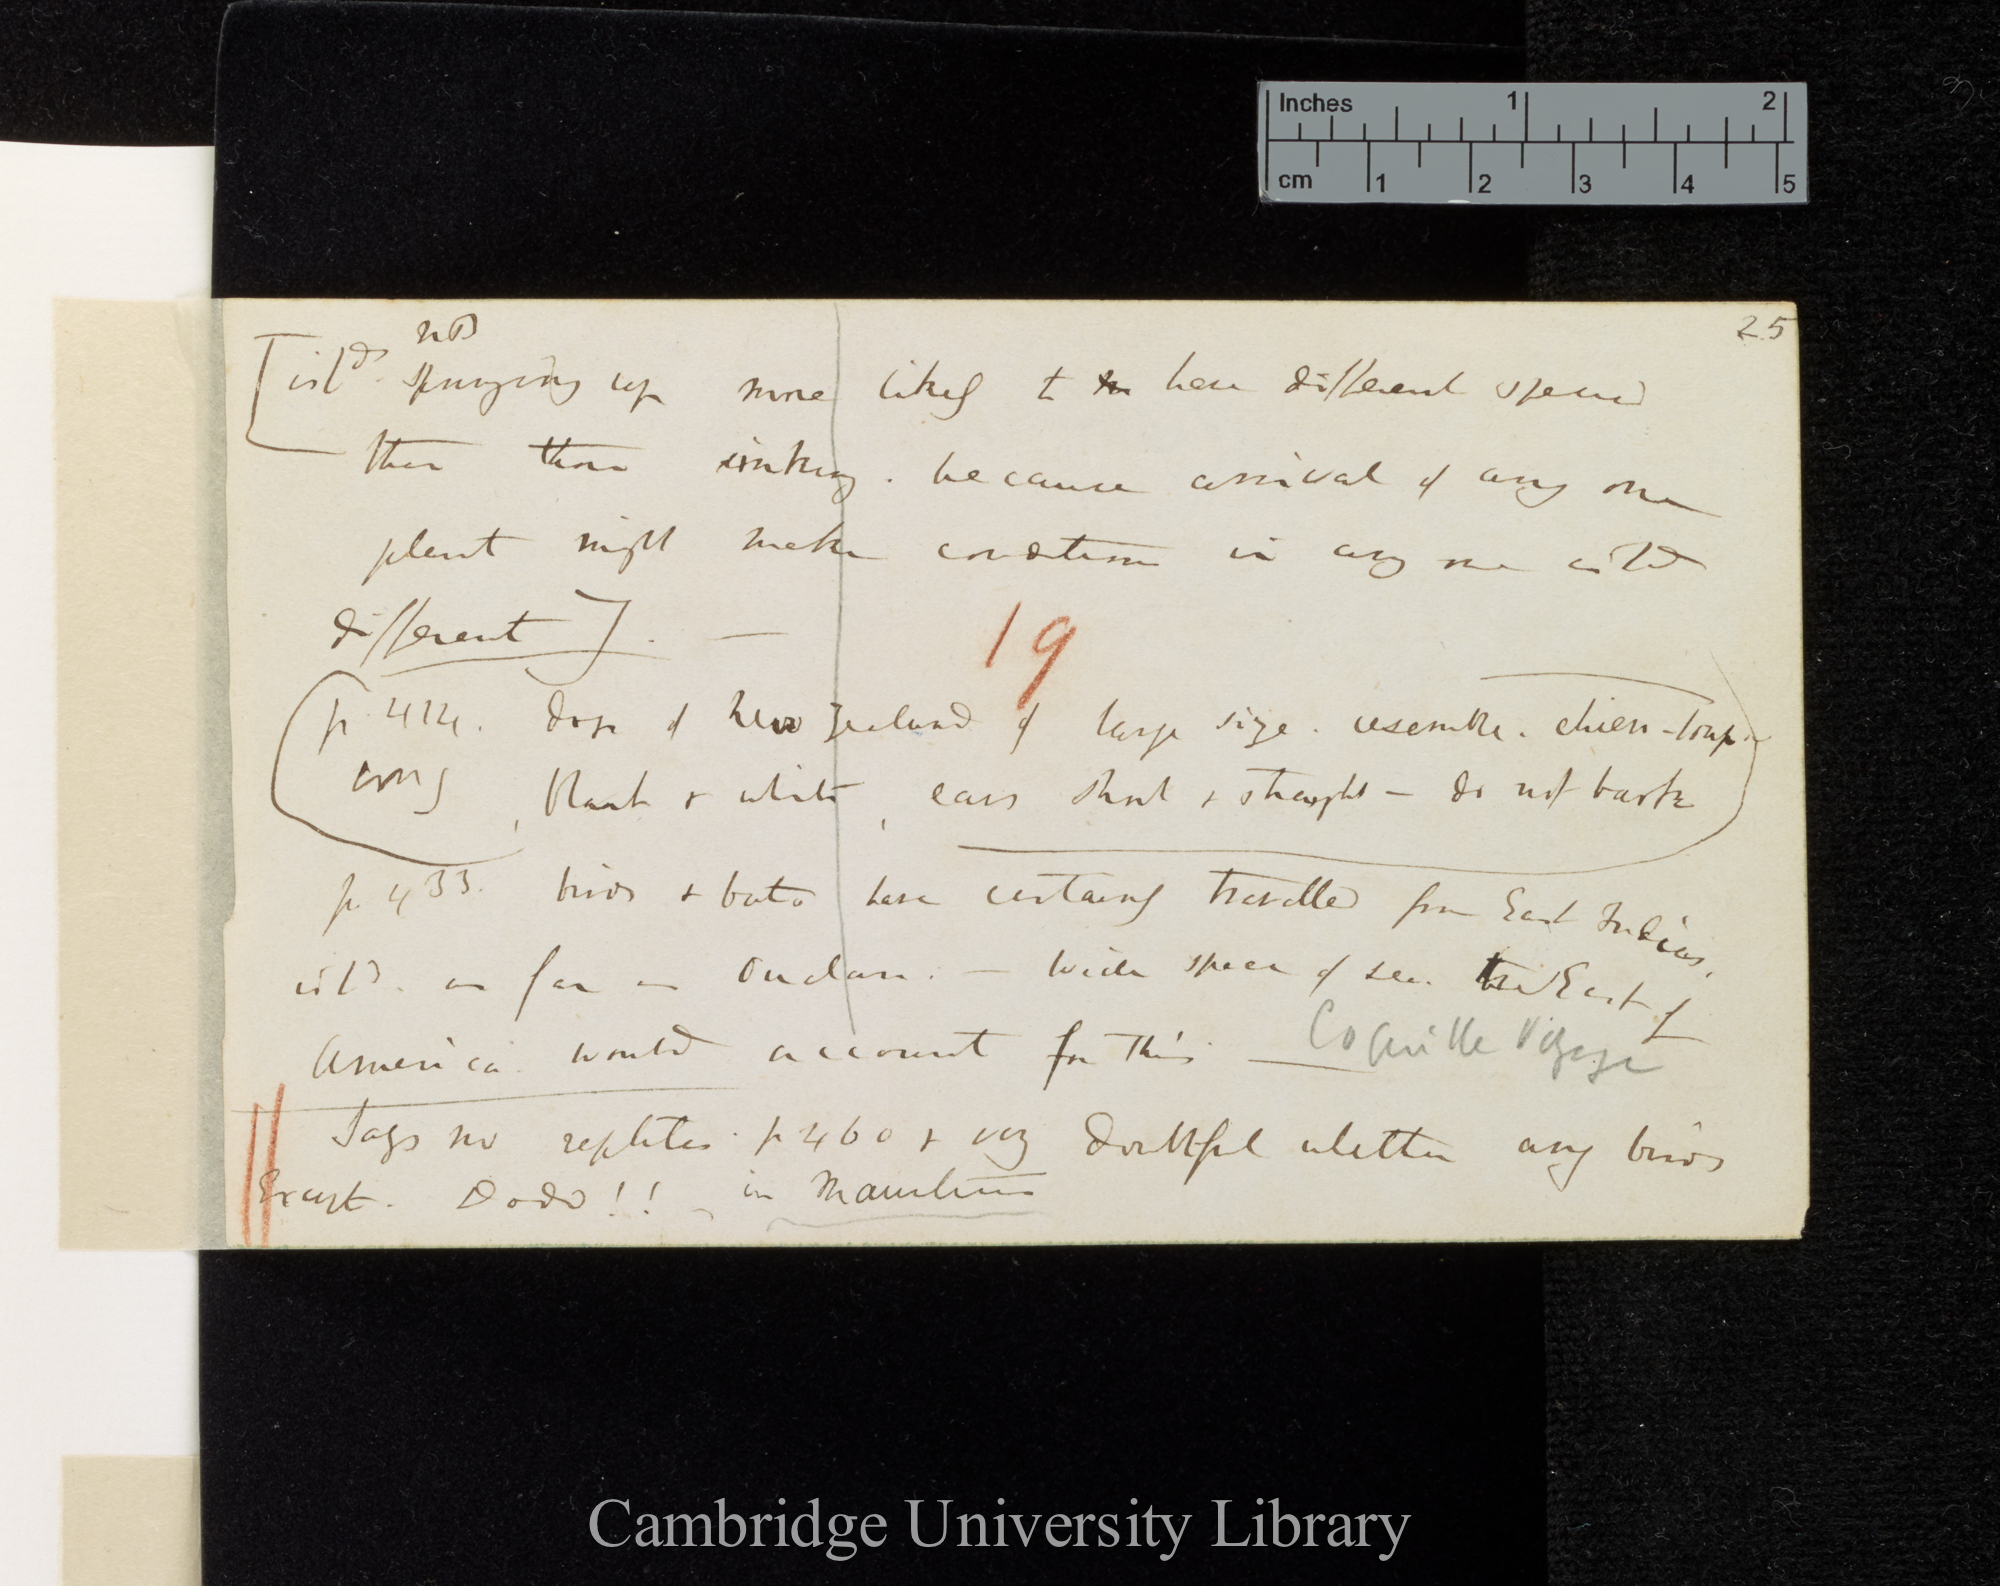 Inches 1 2
cm 1 2 3 4 5
25
not
[isl^ds. springing up more likely to have different species
than those sinking. because arrival of any one
plant might make condition in any one isl^d
different]. —
19
p. 424. Dogs of New Zealand of large size. resemble. chien-loup.
long, black & white, ears short & straight — do not bark
p 433. birds & bats have certainly travelled from East Indian.
isl^ds. as far as Oualan. — wide space of sea. to East of
America. would account for this. — Coquille Voyage
Says no reptiles. p 460 & very doubtful whether any birds
Except. Dodo!! in Mauritius
Cambridge University Library